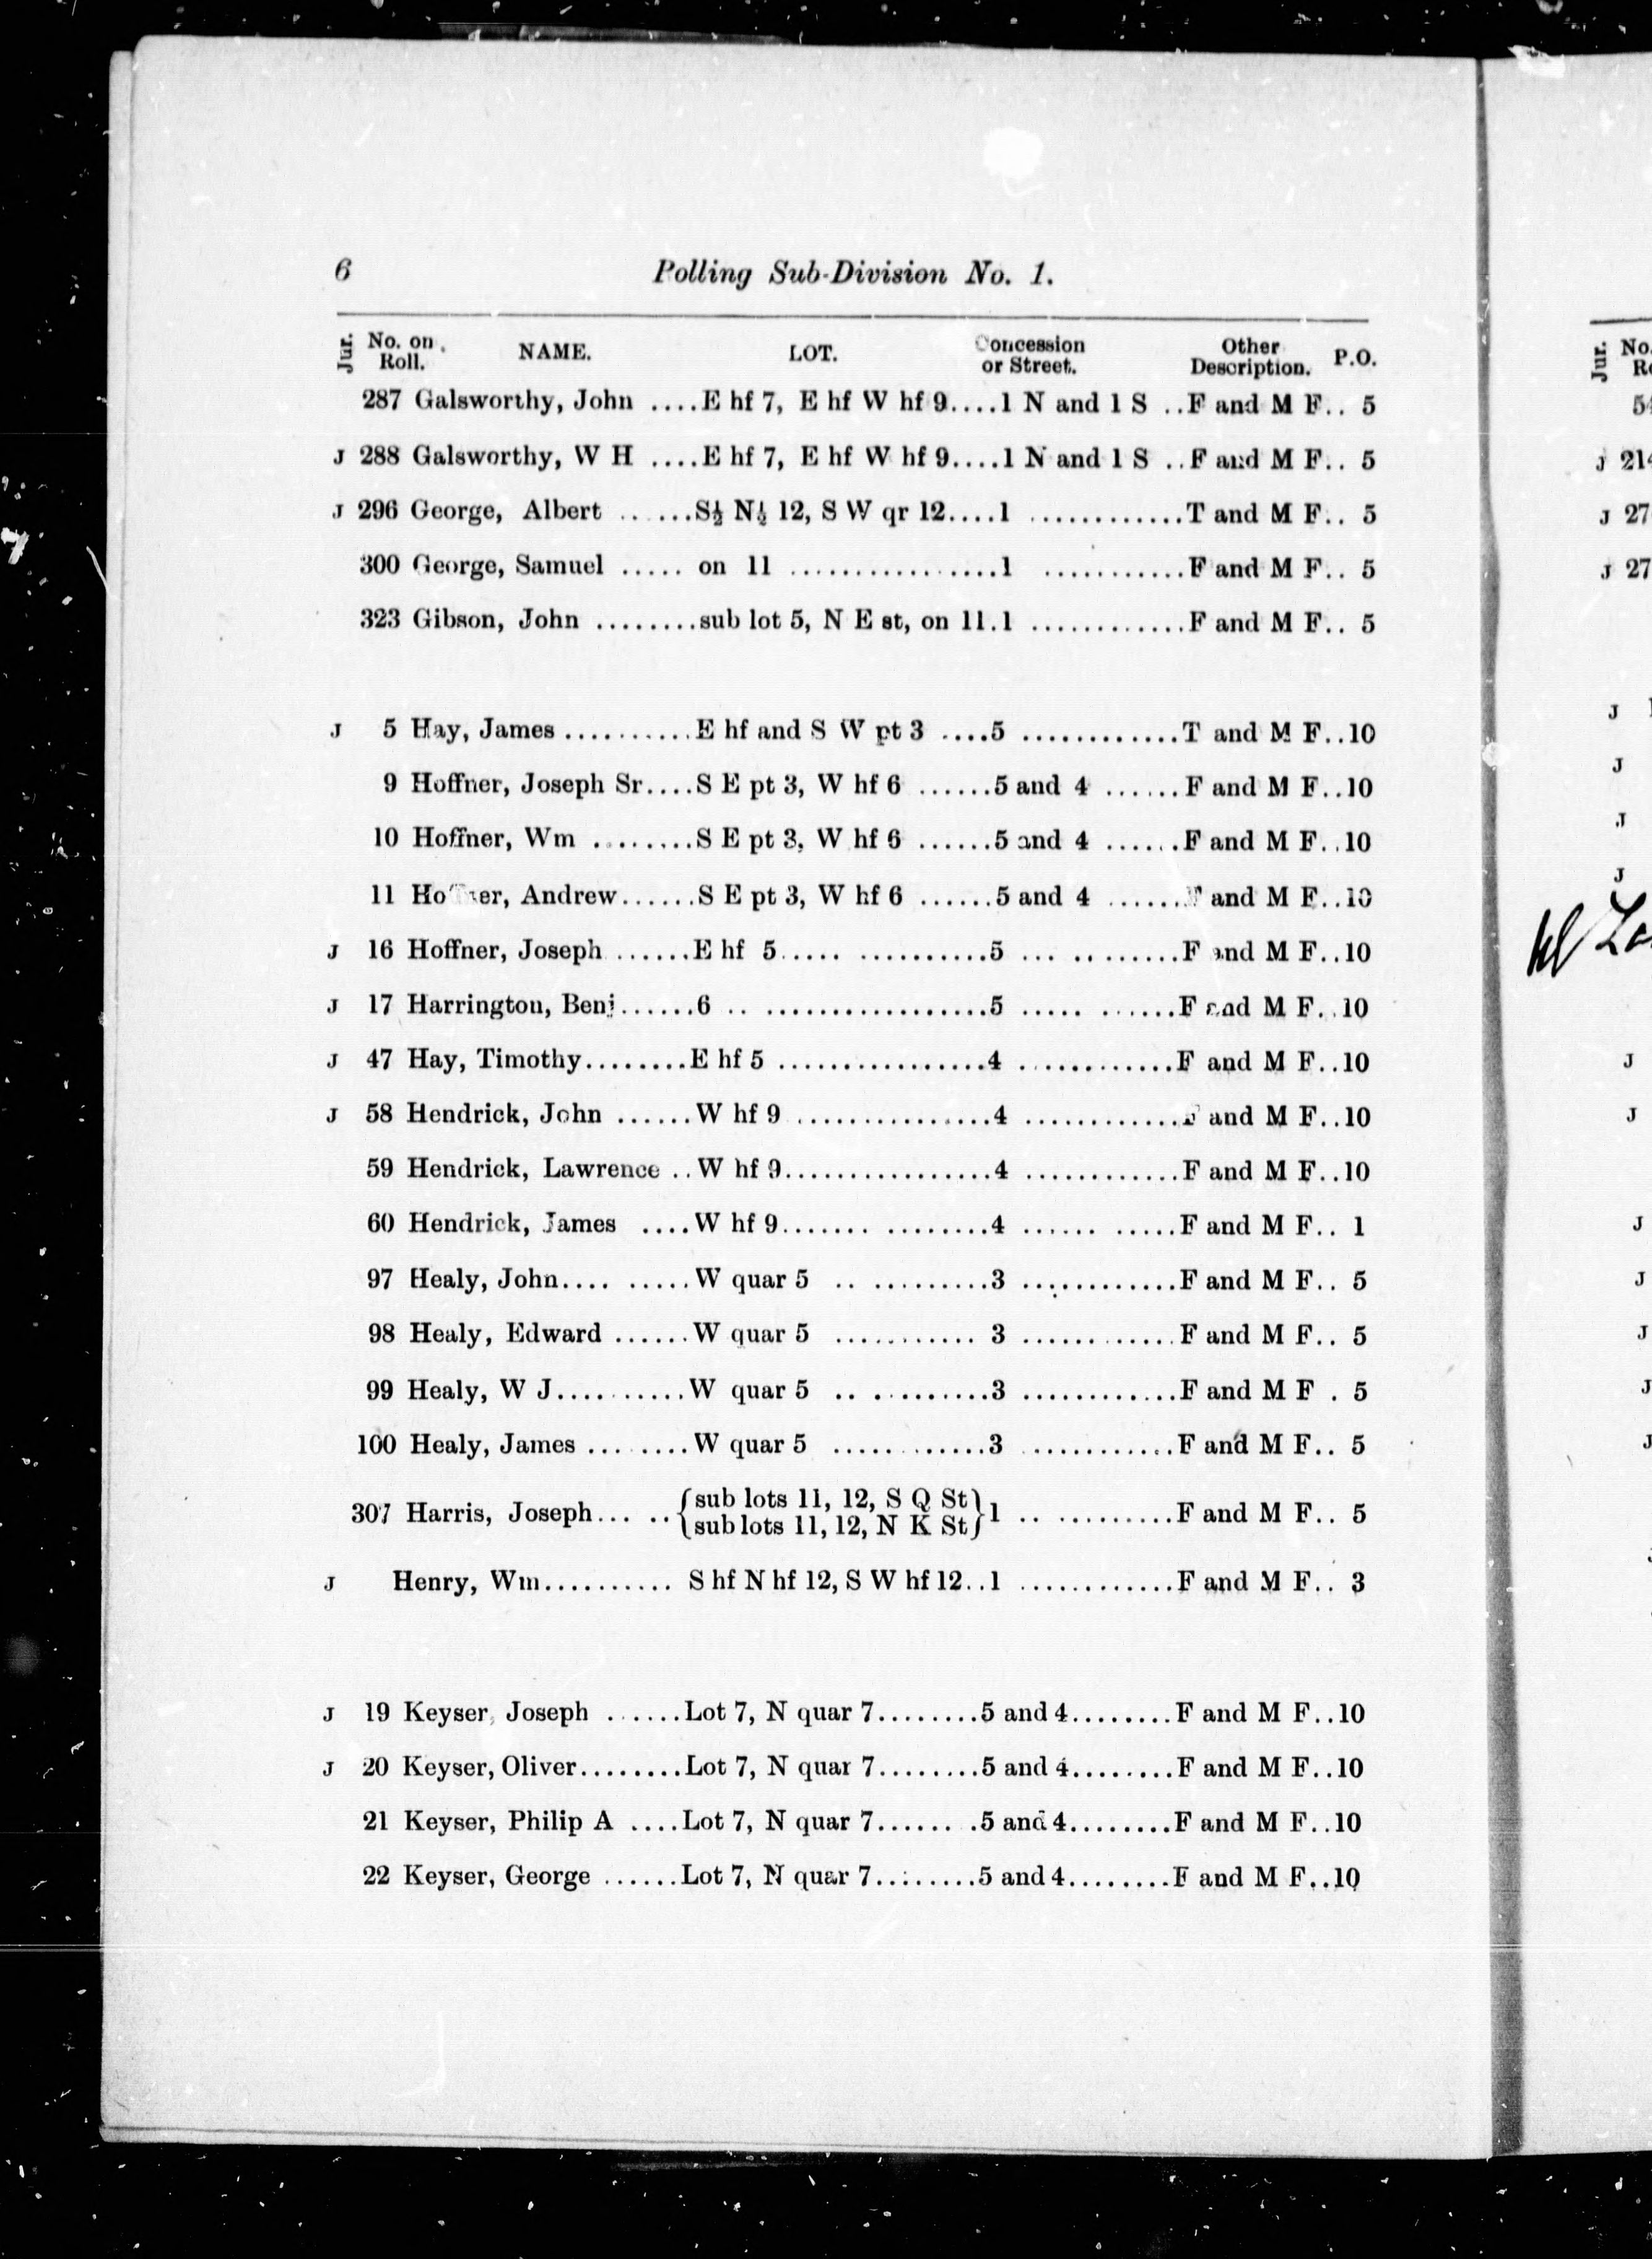 6 Polling Sub-Division No. 1.
Jur. No. on Roll. NAME. LOT. Concession or Street. Other Description. P.O.
287 Galsworthy, John ....E hf 7, E hf W hf 9....1 N and 1 S ..F and M F.. 5
J 288 Galsworthy, W H ....E hf 7, E hf W hf 9....1 N and 1 S ..F and M F.. 5
J 296 George, Albert ......S½ N½ 12, S W qr 12....1 ............T and M F.. 5
300 George, Samuel ..... on 11 ................1 ...........F and M F.. 5
323 Gibson, John ........sub lot 5, N E st, on 11.1 ............F and M F.. 5
J 5 Hay, James ..........E hf and S W pt 3 ....5 ............T and M F..10
9 Hoffner, Joseph Sr....S E pt 3, W hf 6 ......5 and 4 ......F and M F..10
10 Hoffner, Wm ........S E pt 3, W hf 6 ......5 and 4 ......F and M F..10
11 Hoffner, Andrew......S E pt 3, W hf 6 ......5 and 4 ......F and M F..10
J 16 Hoffner, Joseph ......E hf 5..... ..........5 ... .. .......F and M F..10
J 17 Harrington, Benj......6 .. .................5 ..... ......F and M F..10
J 47 Hay, Timothy........E hf 5 ................4 ............F and M F..10
J 58 Hendrick, John ......W hf 9 ...............4 ............F and M F..10
59 Hendrick, Lawrence ..W hf 9................4 ............F and M F..10
60 Hendrick, James ....W hf 9....... ........4 ...... .....F and M F.. 1
97 Healy, John.... .....W quar 5 .. .........3 ............F and M F.. 5
98 Healy, Edward ......W quar 5 ........... 3 ............F and M F.. 5
99 Healy, W J..........W quar 5 .. .........3 ............F and M F . 5
100 Healy, James ........W quar 5 ............3 ............F and M F.. 5
307 Harris, Joseph... ..{sub lots 11, 12, S Q St}1 .. .........F and M F.. 5
{sub lots 11, 12, N K St}
J Henry, Wm.......... S hf N hf 12, S W hf 12..1 ............F and M F.. 3
J 19 Keyser, Joseph ......Lot 7, N quar 7........5 and 4........F and M F..10
J 20 Keyser, Oliver........Lot 7, N quar 7........5 and 4........F and M F..10
21 Keyser, Philip A ....Lot 7, N quar 7...... .5 and 4........F and M F..10
22 Keyser, George ......Lot 7, N quar 7........5 and 4........F and M F..10
Jur. No.
J
J
J
J
J
J
J
J
J
J
J